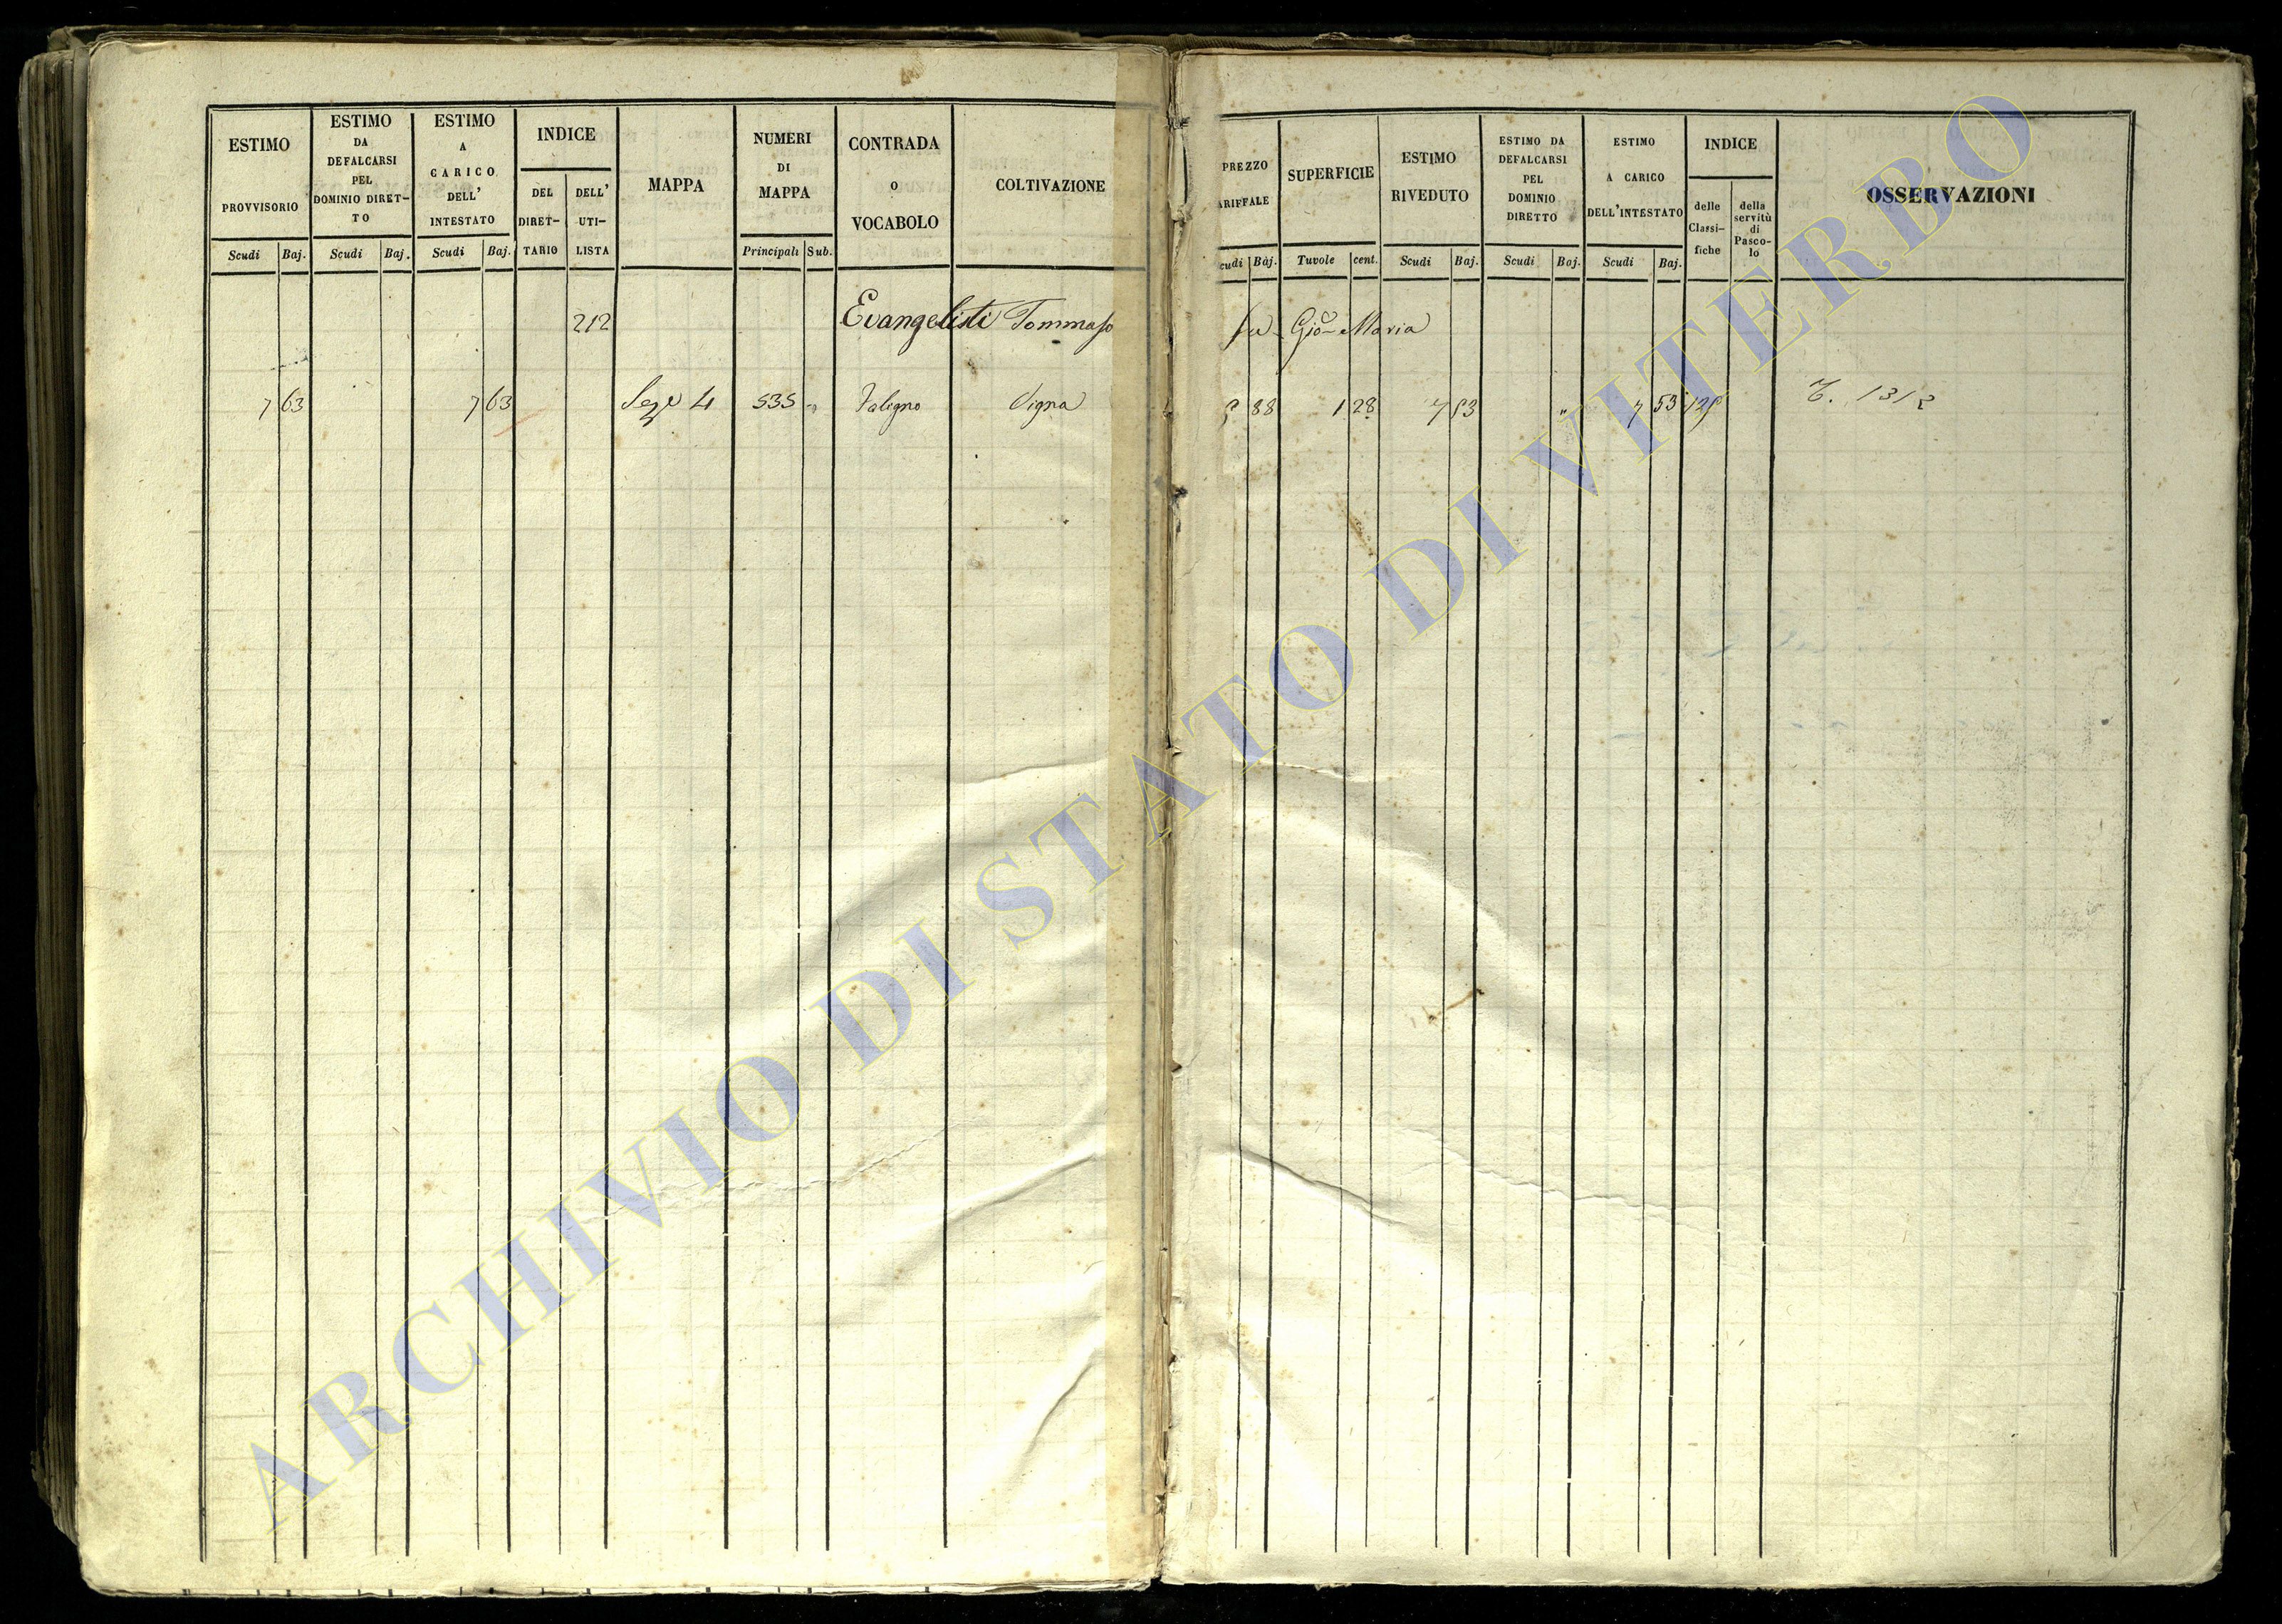 ESTIMO PROVVISORIO Scudi Baj.
ESTIMO DA DEFALCARSI PEL DOMINIO DIRET-TO Scudi Baj.
ESTIMO A CARICO DELL' INTESTATO Scudi Baj.
INDICE DEL DIRET-TARIO DELL' UTI-LISTA
MAPPA
NUMERI DI MAPPA Principali Sub.
CONTRADA O VOCABOLO
COLTIVAZIONE
PREZZO ARIFFALE cudi Baj.
SUPERFICIE Tavole cent.
ESTIMO RIVEDUTO Scudi Baj.
ESTIMO DA DEFALCARSI PEL DOMINIO DIRETTO Scudi Baj.
ESTIMO A CARICO DELL'INTESTATO Scudi Baj.
INDICE delle Classi-fiche della servitù di Pasco-lo
OSSERVAZIONI
212 Evangelisti Tommaso fu Gio Maria
7 63 7 63 Sez 4 535 Vigna 88 1 28 7 53 " 7 53
ARCHIVIO DI STATO DI VITERBO